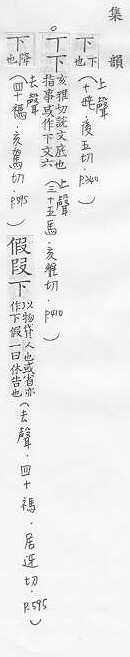 集韻
下 下也(上聲・十姥・後五切・P.340)
丅下 亥雅切說文底也指事或作下文六(上聲・三十五馬・亥雅切・P.410)
下 降也(去聲・四十禡・亥駕切・P.595)
假叚下 以物貸人也或省亦作下假一曰休告也(去聲・四十禡・居迓切・P.595)